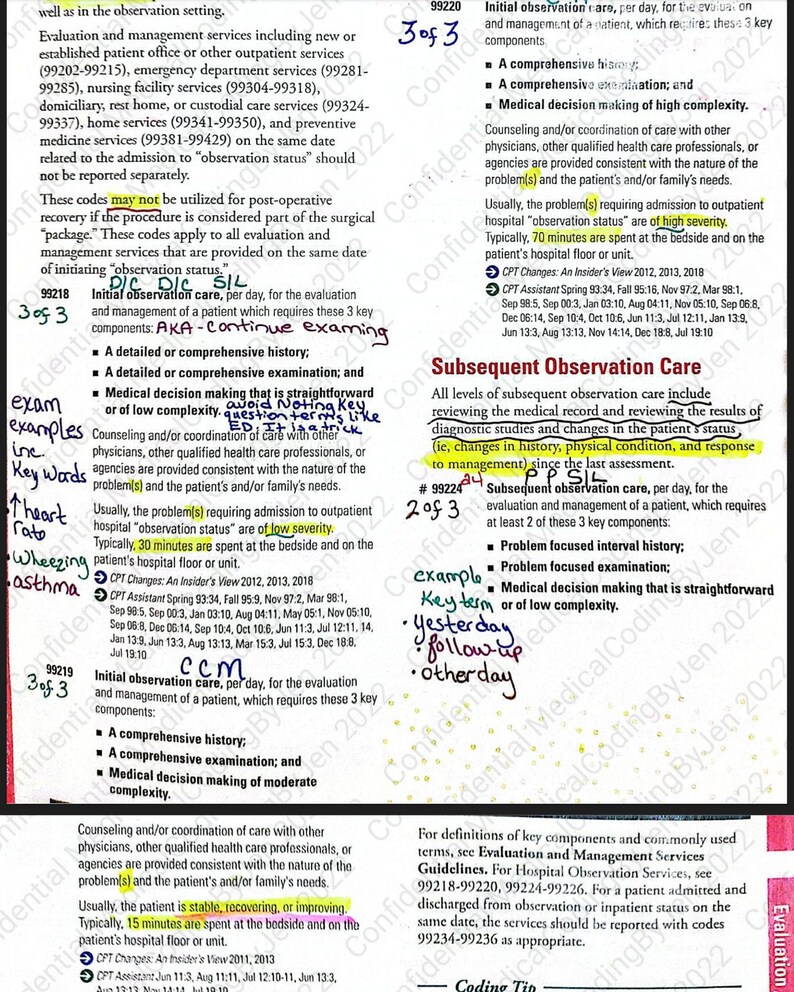 well as in the observation setting.
Evaluation and management services including new or
established patient office or other outpatient services
(99202-99215), emergency department services (99281-
99285), nursing facility services (99304-99318),
domiciliary, rest home, or custodial care services (99324-
99337), home services (99341-99350), and preventive
medicine services (99381-99429) on the same date
related to the admission to “observation status” should
not be reported separately.
These codes may not be utilized for post-operative
recovery if the procedure is considered part of the surgical
“package.” These codes apply to all evaluation and
management services that are provided on the same date
of initiating “observation status.”
D/C D/C S/L
99218 Initial observation care, per day, for the evaluation
3 of 3
and management of a patient which requires these 3 key
components: AKA - Continue examing
■ A detailed or comprehensive history;
■ A detailed or comprehensive examination; and
■ Medical decision making that is straightforward
or of low complexity. avoid Noting Key
question terms like
ED. It is a trick
exam
examples
inc.
Key Words
↑heart
rate
• Wheezing
• asthma
Counseling and/or coordination of care with other
physicians, other qualified health care professionals, or
agencies are provided consistent with the nature of the
problem(s) and the patient's and/or family's needs.
Usually, the problem(s) requiring admission to outpatient
hospital “observation status” are of low severity.
Typically, 30 minutes are spent at the bedside and on the
patient's hospital floor or unit.
CPT Changes: An Insider's View 2012, 2013, 2018
CPT Assistant Spring 93:34, Fall 95:9, Nov 97:2, Mar 98:1,
Sep 98:5, Sep 00:3, Jan 03:10, Aug 04:11, May 05:1, Nov 05:10,
Sep 06:8, Dec 06:14, Sep 10:4, Oct 10:6, Jun 11:3, Jul 12:11, 14,
Jan 13:9, Jun 13:3, Aug 13:13, Mar 15:3, Jul 15:3, Dec 18:8,
Jul 19:10
C C M
99219 Initial observation care, per day, for the evaluation
3 of 3
and management of a patient, which requires these 3 key
components:
■ A comprehensive history;
■ A comprehensive examination; and
■ Medical decision making of moderate
complexity.
99220 Initial observation care, per day, for the evaluation
3 of 3
and management of a patient, which requires these 3 key
components
■ A comprehensive history;
■ A comprehensive examination; and
■ Medical decision making of high complexity.
Counseling and/or coordination of care with other
physicians, other qualified health care professionals, or
agencies are provided consistent with the nature of the
problem(s) and the patient's and/or family's needs.
Usually, the problem(s) requiring admission to outpatient
hospital “observation status” are of high severity.
Typically, 70 minutes are spent at the bedside and on the
patient's hospital floor or unit.
CPT Changes: An Insider's View 2012, 2013, 2018
CPT Assistant Spring 93:34, Fall 95:16, Nov 97:2, Mar 98:1,
Sep 98:5, Sep 00:3, Jan 03:10, Aug 04:11, Nov 05:10, Sep 06:8,
Dec 06:14, Sep 10:4, Oct 10:6, Jun 11:3, Jul 12:11, Jan 13:9,
Jun 13:3, Aug 13:13, Nov 14:14, Dec 18:8, Jul 19:10
Subsequent Observation Care
All levels of subsequent observation care include
reviewing the medical record and reviewing the results of
diagnostic studies and changes in the patient's status
(ie, changes in history, physical condition, and response
to management) since the last assessment.
24 P P S/L
# 99224 Subsequent observation care, per day, for the
2 of 3
evaluation and management of a patient, which requires
at least 2 of these 3 key components:
■ Problem focused interval history;
■ Problem focused examination;
■ Medical decision making that is straightforward
or of low complexity.
example
Key term
• yesterday
• follow-up
• other day
Counseling and/or coordination of care with other
physicians, other qualified health care professionals, or
agencies are provided consistent with the nature of the
problem(s) and the patient's and/or family's needs.
Usually, the patient is stable, recovering, or improving.
Typically, 15 minutes are spent at the bedside and on the
patient's hospital floor or unit.
CPT Changes: An Insider's View 2011, 2013
CPT Assistant Jun 11:3, Aug 11:11, Jul 12:10-11, Jun 13:3,
Aug 13:13, Nov 14:14, Jul 19:10
For definitions of key components and commonly used
terms, see Evaluation and Management Services
Guidelines. For Hospital Observation Services, see
99218-99220, 99224-99226. For a patient admitted and
discharged from observation or inpatient status on the
same date, the services should be reported with codes
99234-99236 as appropriate.
Coding Tip
Evaluation
Confidential MedicalCodingByJen 2022